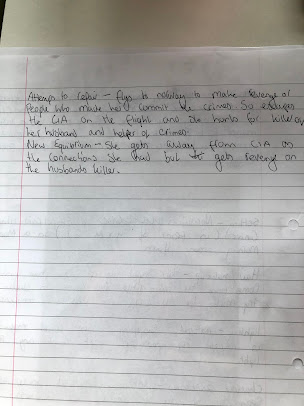 Attempt to repair - flys to norway to make revenge of
People who made her commit the crimes. So escapes
the CIA on the flight and she hunts for killer of
her husband and helper of crimes.
New Equilibrium - She gets away from CIA as
the connections she had but gets revenge on
the husbands killer.